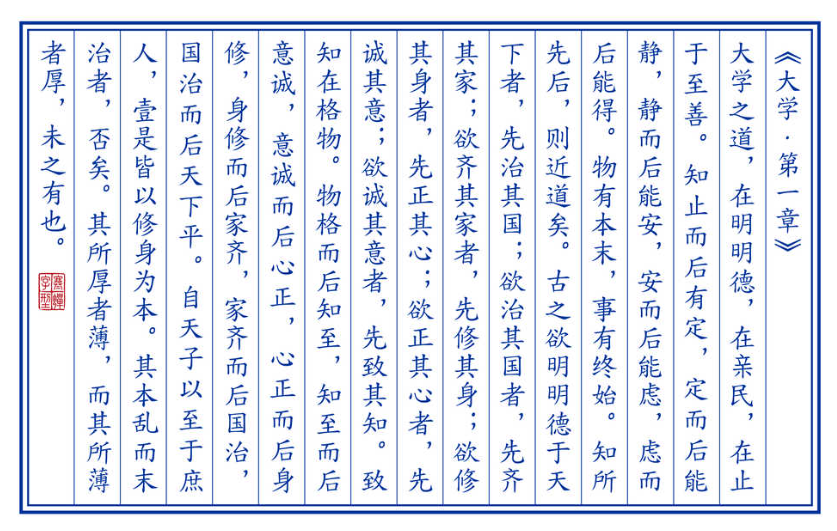 《大学·第一章》
大学之道，在明明德，在亲民，在止
于至善。知止而后有定，定而后能
静，静而后能安，安而后能虑，虑而
后能得。物有本末，事有终始。知所
先后，则近道矣。古之欲明明德于天
下者，先治其国；欲治其国者，先齐
其家；欲齐其家者，先修其身；欲修
其身者，先正其心；欲正其心者，先
诚其意；欲诚其意者，先致其知。致
知在格物。物格而后知至，知至而后
意诚，意诚而后心正，心正而后身
修，身修而后家齐，家齐而后国治，
国治而后天下平。自天子以至于庶
人，壹是皆以修身为本。其本乱而末
治者，否矣。其所厚者薄，而其所薄
者厚，未之有也。